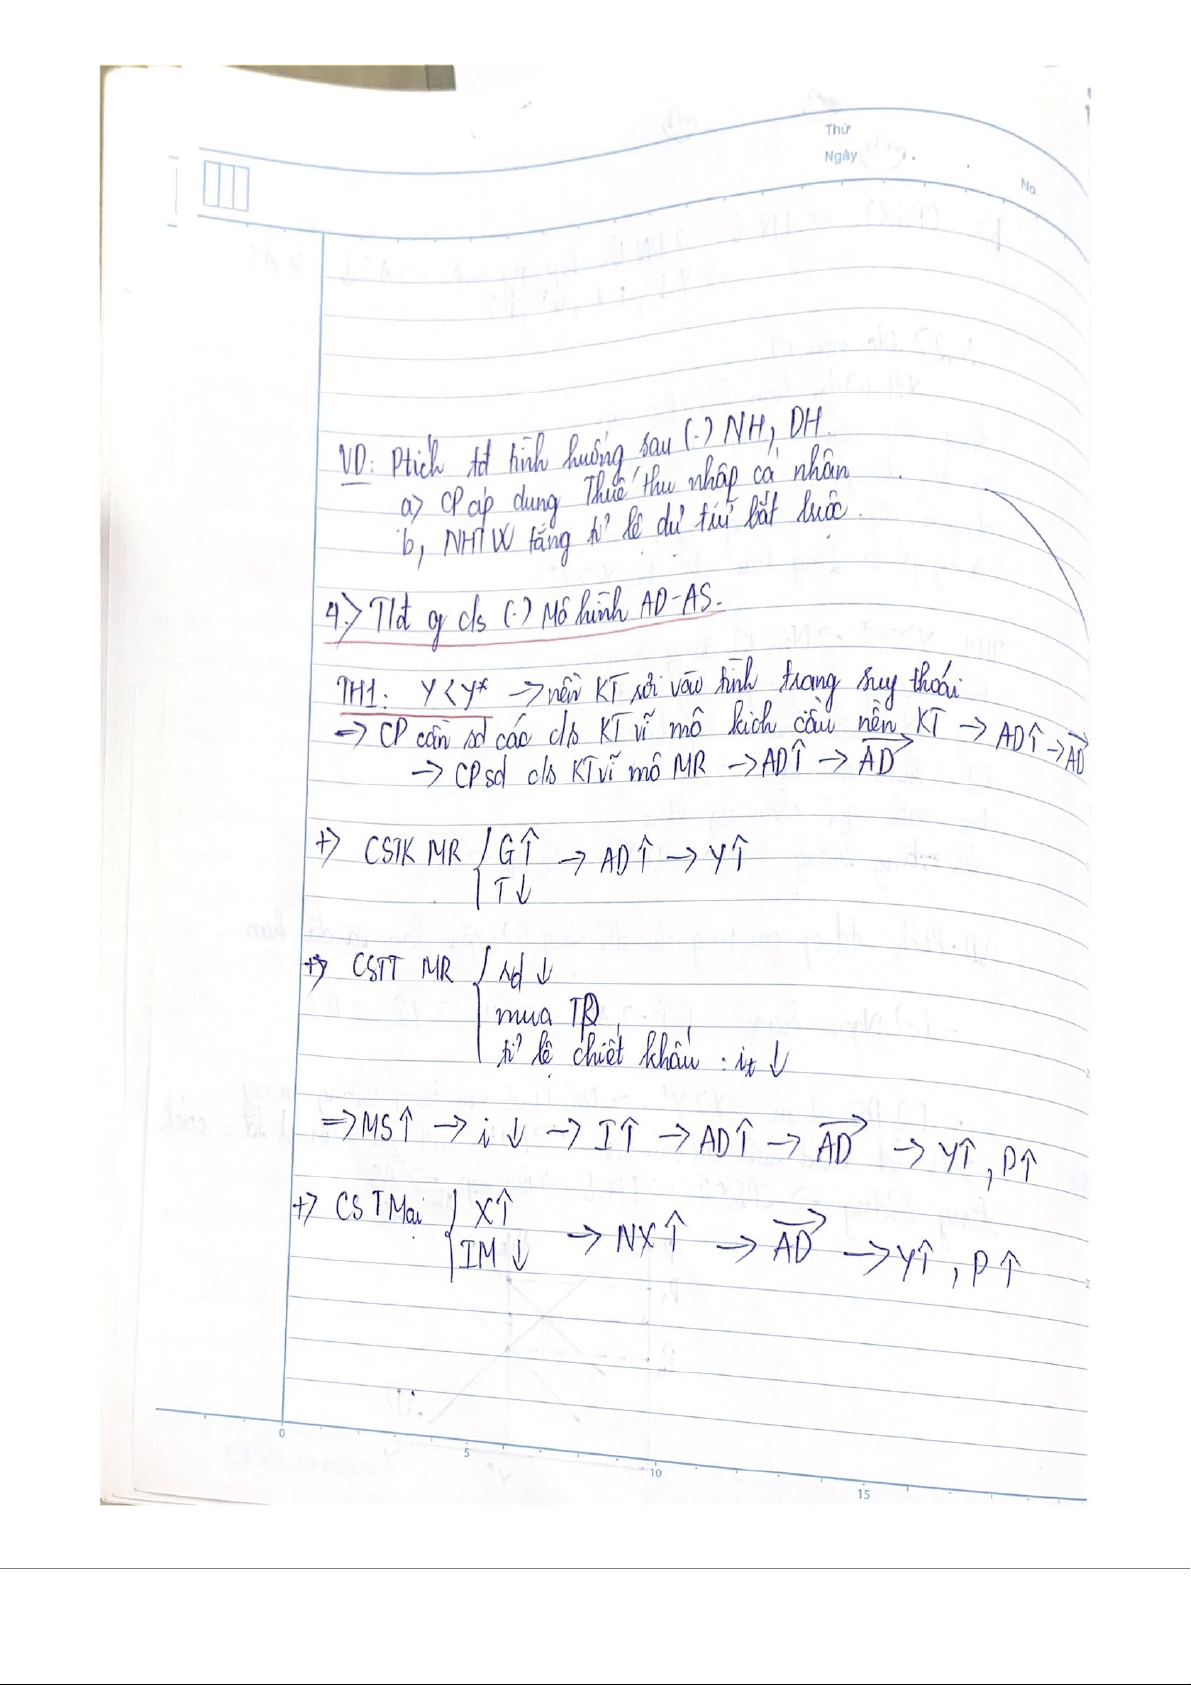 Thứ
Ngày
No
VD: Ptích tđ tình huống sau (.) NH, DH.
a) CP áp dụng Thuế thu nhập cá nhân
b, NHTW tăng tỉ lệ dự trữ bắt buộc.
4.) Tđ of c/s (.) Mô hình AD-AS.
TH1: Y < Y* → nền KT rơi vào tình trạng suy thoái
⇒ CP cần sd các c/s KT vĩ mô kích cầu nền KT → AD↑ → AD→
→ CP sd c/s KT vĩ mô MR → AD↑ → AD→
+) CSTK MR { G↑ → AD↑ → Y↑
T↓
+) CSTT MR { rd ↓
mua TP
tỉ lệ chiết khấu : it ↓
⇒ MS↑ → i ↓ → I↑ → AD↑ → AD→ → Y↑, P↑
+) CS TMại { X↑ → NX↑ → AD→ → Y↑, P↑
IM ↓
0
5
10
15